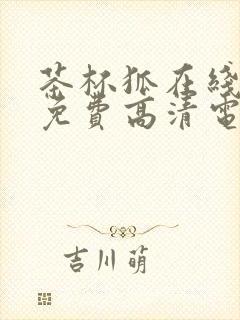 茶杯狐在线
免费高清电
吉川萌